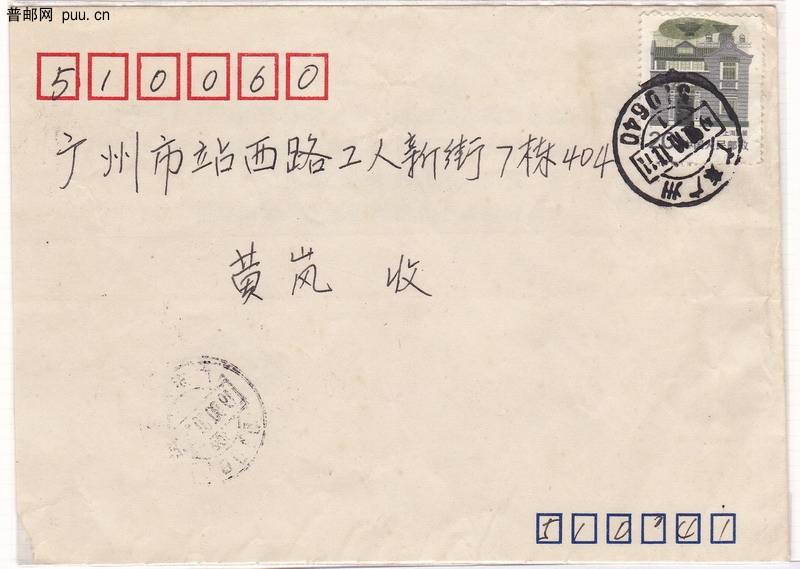 普邮网 puu.cn
510060
广州市站西路工人新街7栋404
黄岚 收
510640
广州
人民邮政